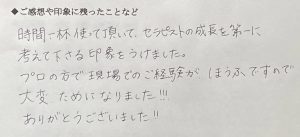 ◆ご感想や印象に残ったことなど
時間一杯使って頂いて、セラピストの成長を第一に
考えて下さる印象をうけました。
プロの方で現場でのご経験が ほうふですので
大変 ためになりました!!!
ありがとうございました!!